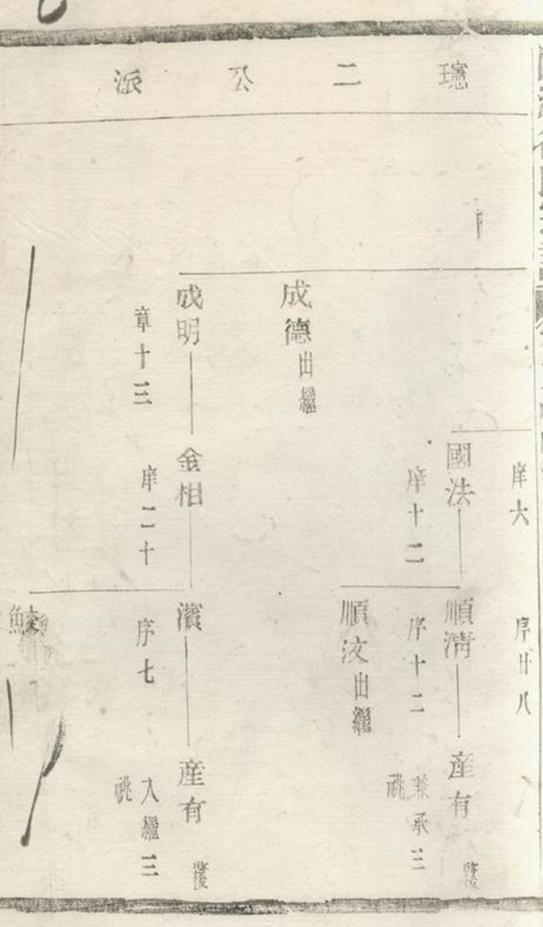 璁二公派
庠大
序廿八
國法
庠十二
順清
序十二
產有
兼承三
祧
順汶出繼
成德出繼
成明
章十三
金相
庠二十
濱
序七
產有
入繼三
祧